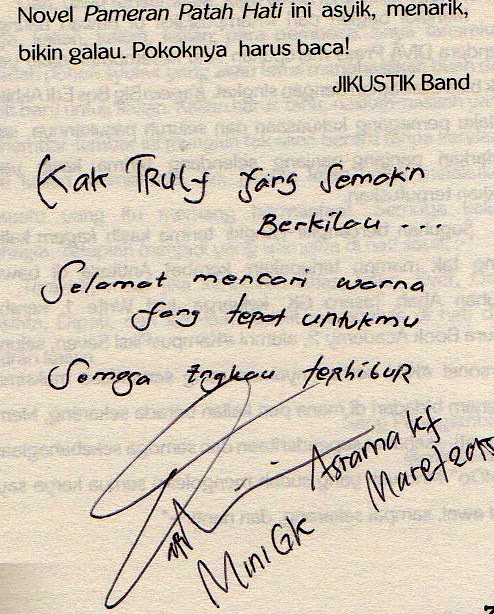 Novel Pameran Patah Hati ini asyik, menarik,
bikin galau. Pokoknya harus baca!
JIKUSTIK Band
Kak Truly yang Semakin
Berkilau ...
Selamat mencari warna
yang tepat untukmu
Semoga Engkau terhibur
Asrama kf
Maret 2015
Mini GK